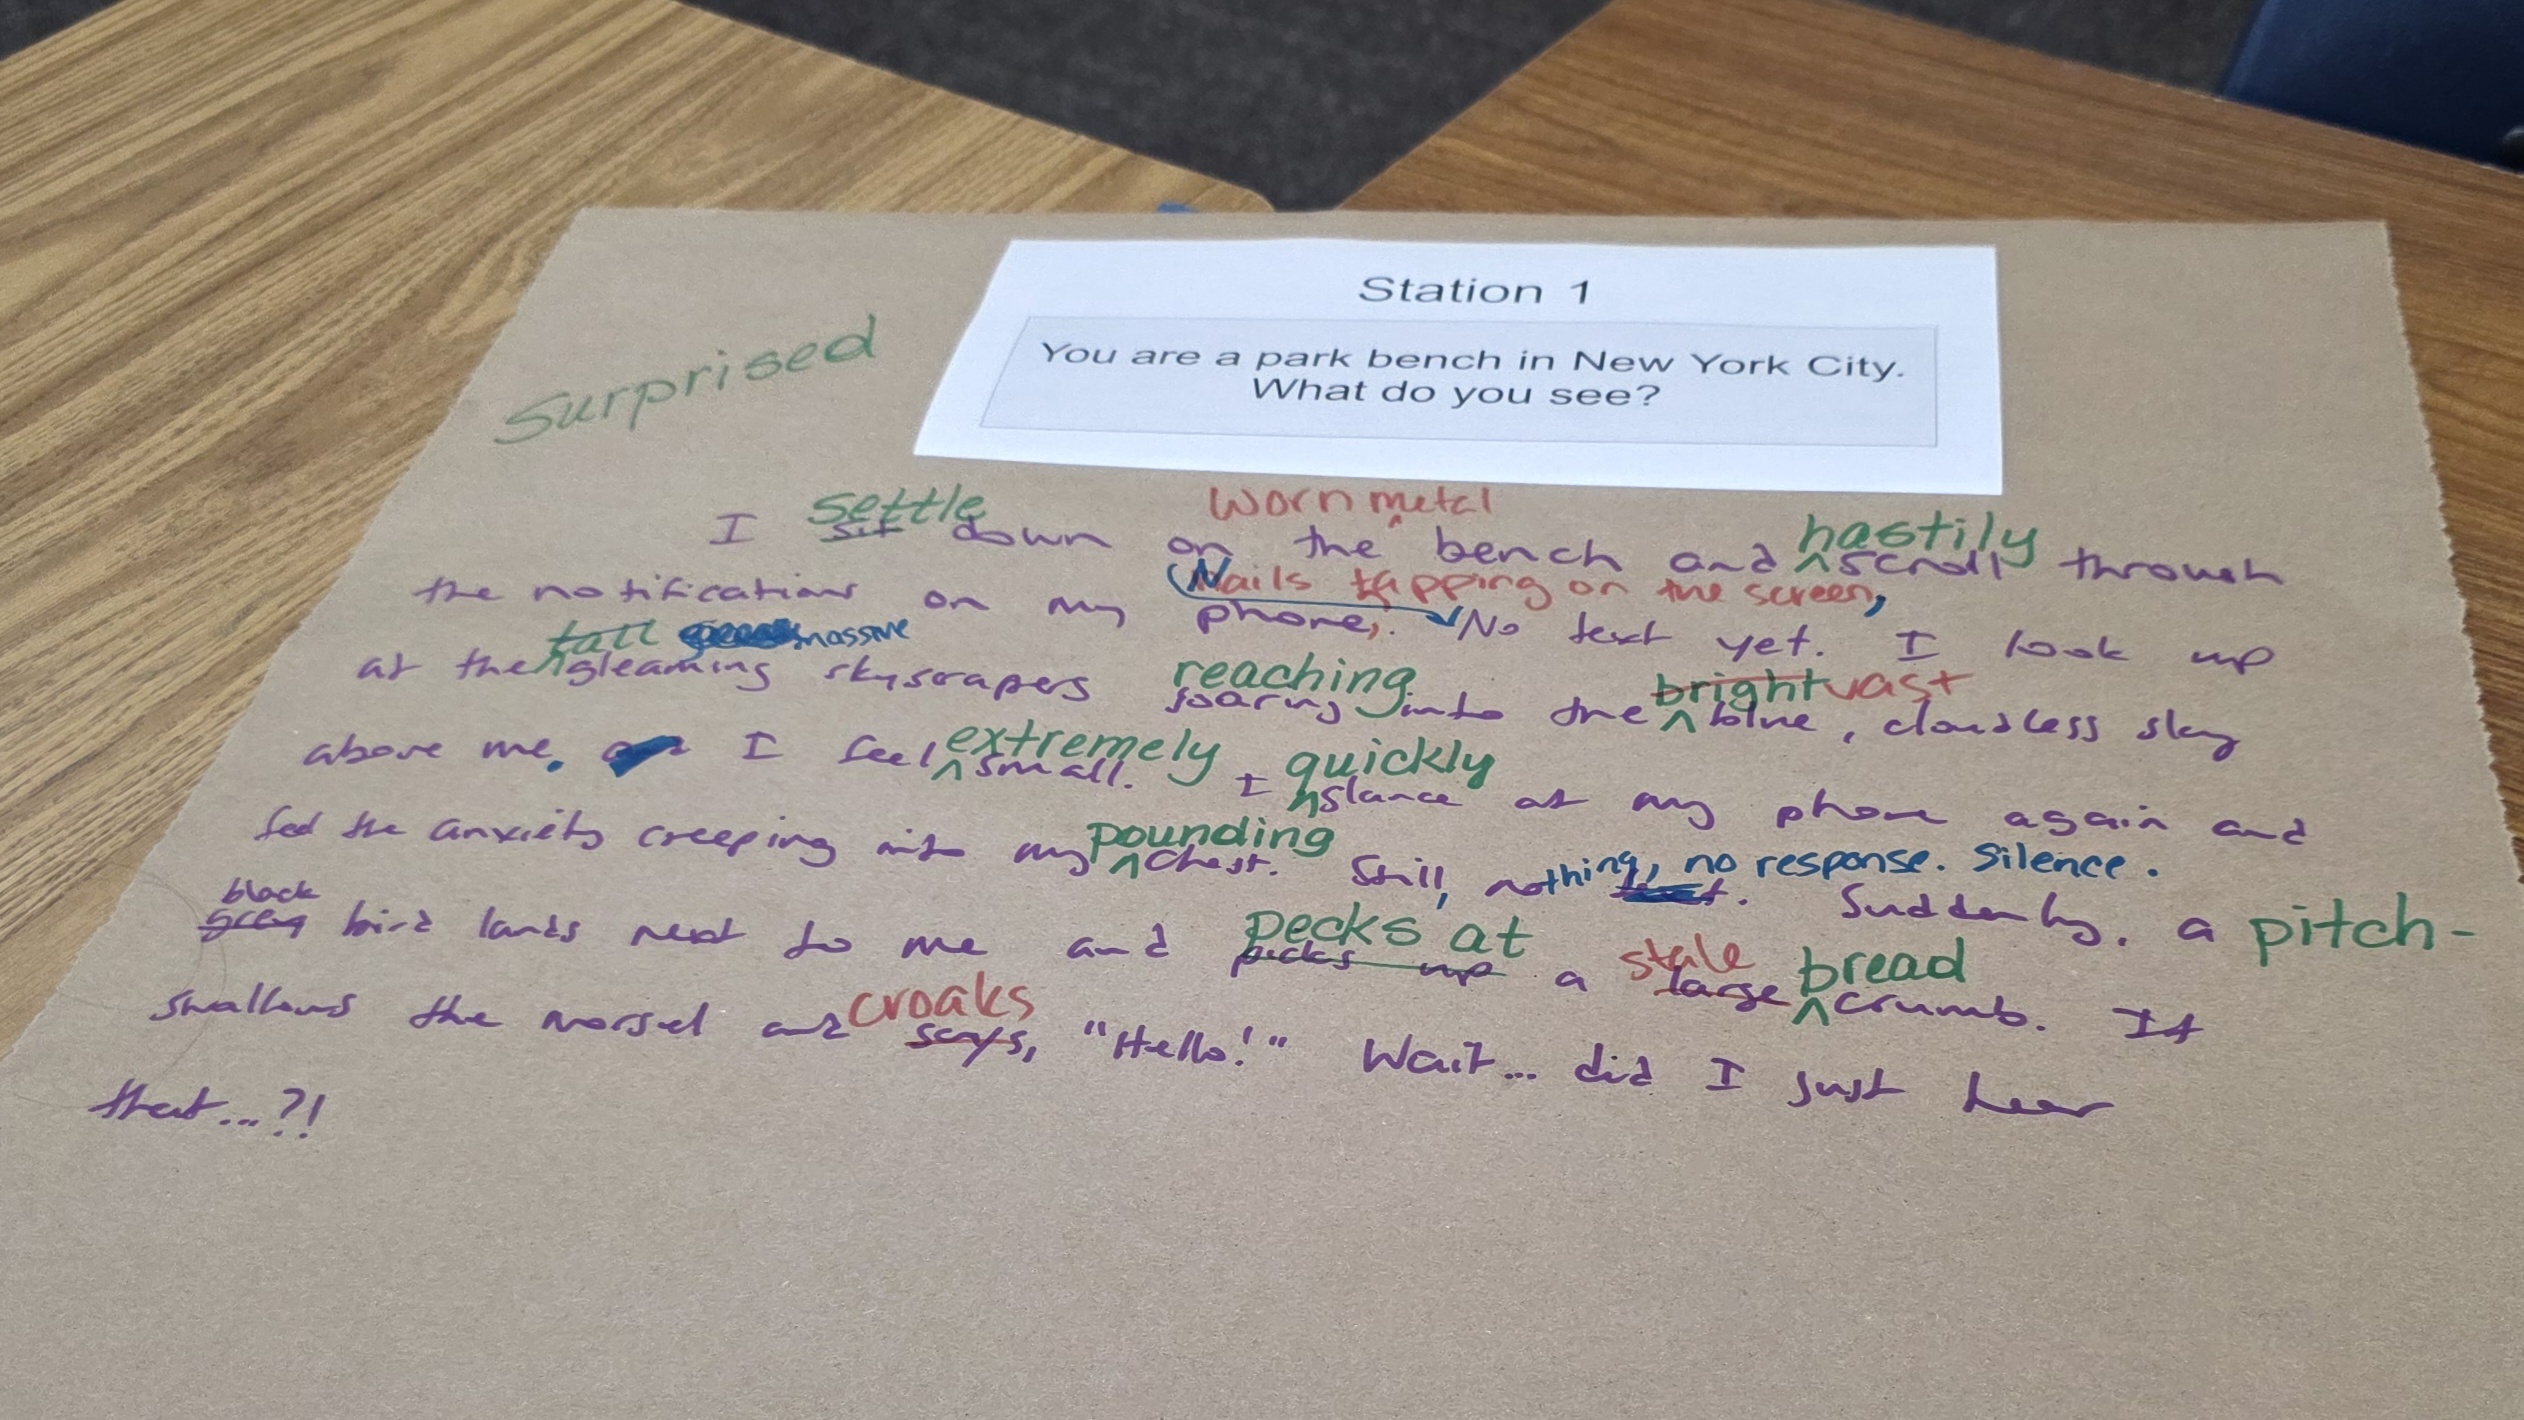 Station 1
You are a park bench in New York City.
What do you see?
Surprised
settle worn metal hastily
I sit down on the bench and scroll through
Nails tapping on the screen,
the notifications on my phone. No text yet. I look up
tall massive reaching bright vast
at the gleaming skyscrapers soaring into the blue, cloudless sky
extremely quickly
above me. I feel small. I glance at my phone again and
pounding
feel the anxiety creeping into my chest. Still, nothing, no response. Silence. Suddenly, a pitch-
black pecks at stale bread
grey bird lands next to me and picks up a large crumb. It
croaks
swallows the morsel and says, "Hello!" Wait... did I just hear
that...?!